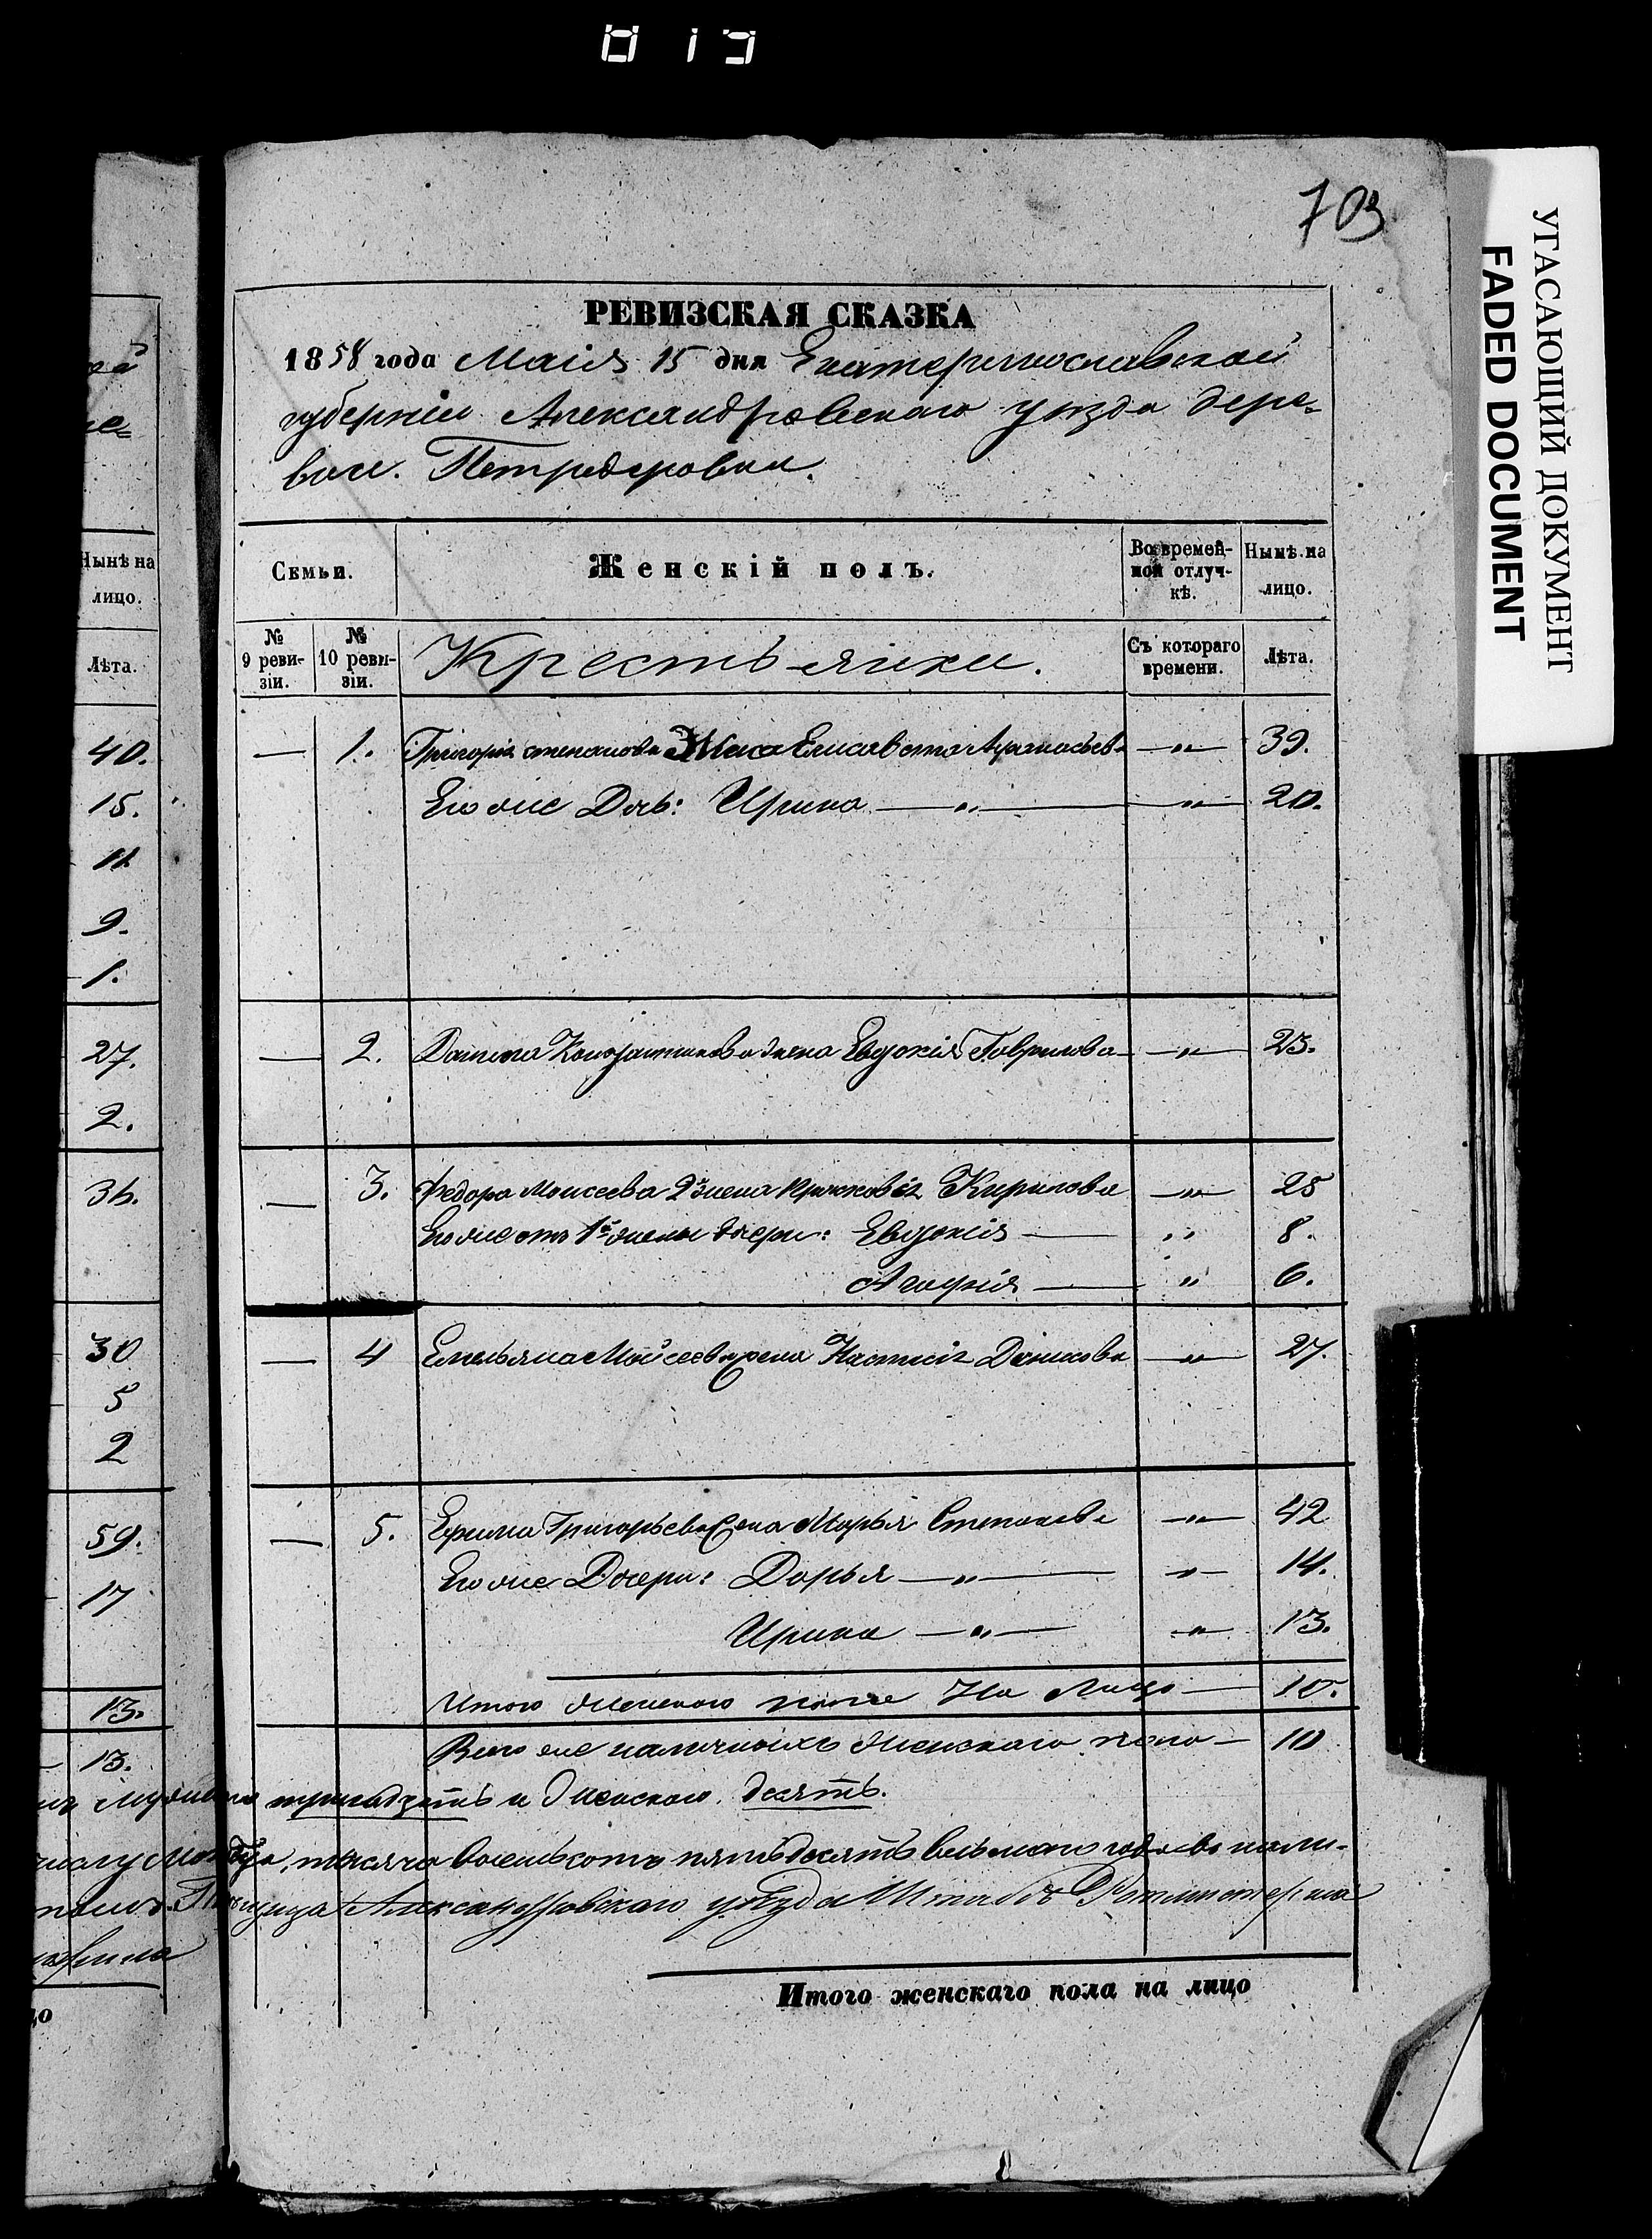 013
703
УГАСАЮЩИЙ ДОКУМЕНТ
FADED DOCUMENT
РЕВИЗСКАЯ СКАЗКА
1858 года Маія 15 дня Екатеринославской
губерніи Александровскаго уѣзда дере-
вни
Семьи.
Женскій полъ.
Во времен-
ной отлуч-
кѣ.
Нынѣ на
лицо.
№
9 реви-
зіи.
№
10 реви-
зіи.
Крестьянки.
Съ котораго
времени.
Лѣта.
— 1. Григорія степанова Жена Елисавета Афанасьева —〃— 39.
Его же Дочь: Ирина —〃— —〃— 20.
— 2. Данила Кондратикова жена Евдокія Гаврилова —〃— 23.
— 3. Федора Моисеева 2я жена Кирилова —〃— 25
Его же отъ 1й жены дочери: Евдокія — 〃 8.
— 〃 6.
— 4 Емельяна Мойсеева жена Данилова —〃— 27.
— 5. Ефима Григорьева жена Марья Степанова —〃— 42
Его же Дочери: Дарья —〃— —〃— 14.
Ирина —〃— —〃— 13.
Итого женскаго пола На Лицо — 10.
Всего же наличныхъ женскаго пола — 10
тринадцать и женскаго десять.
тысяча восемьсотъ пятьдесятъ восьмого года
Александровскаго уѣзда Штабъ Ротмистерша
Итого женскаго пола на лицо
Нынѣ на
лицо.
Лѣта.
40.
15.
11.
9.
1.
27.
2.
36.
30
5
2
59.
17
13.
13.